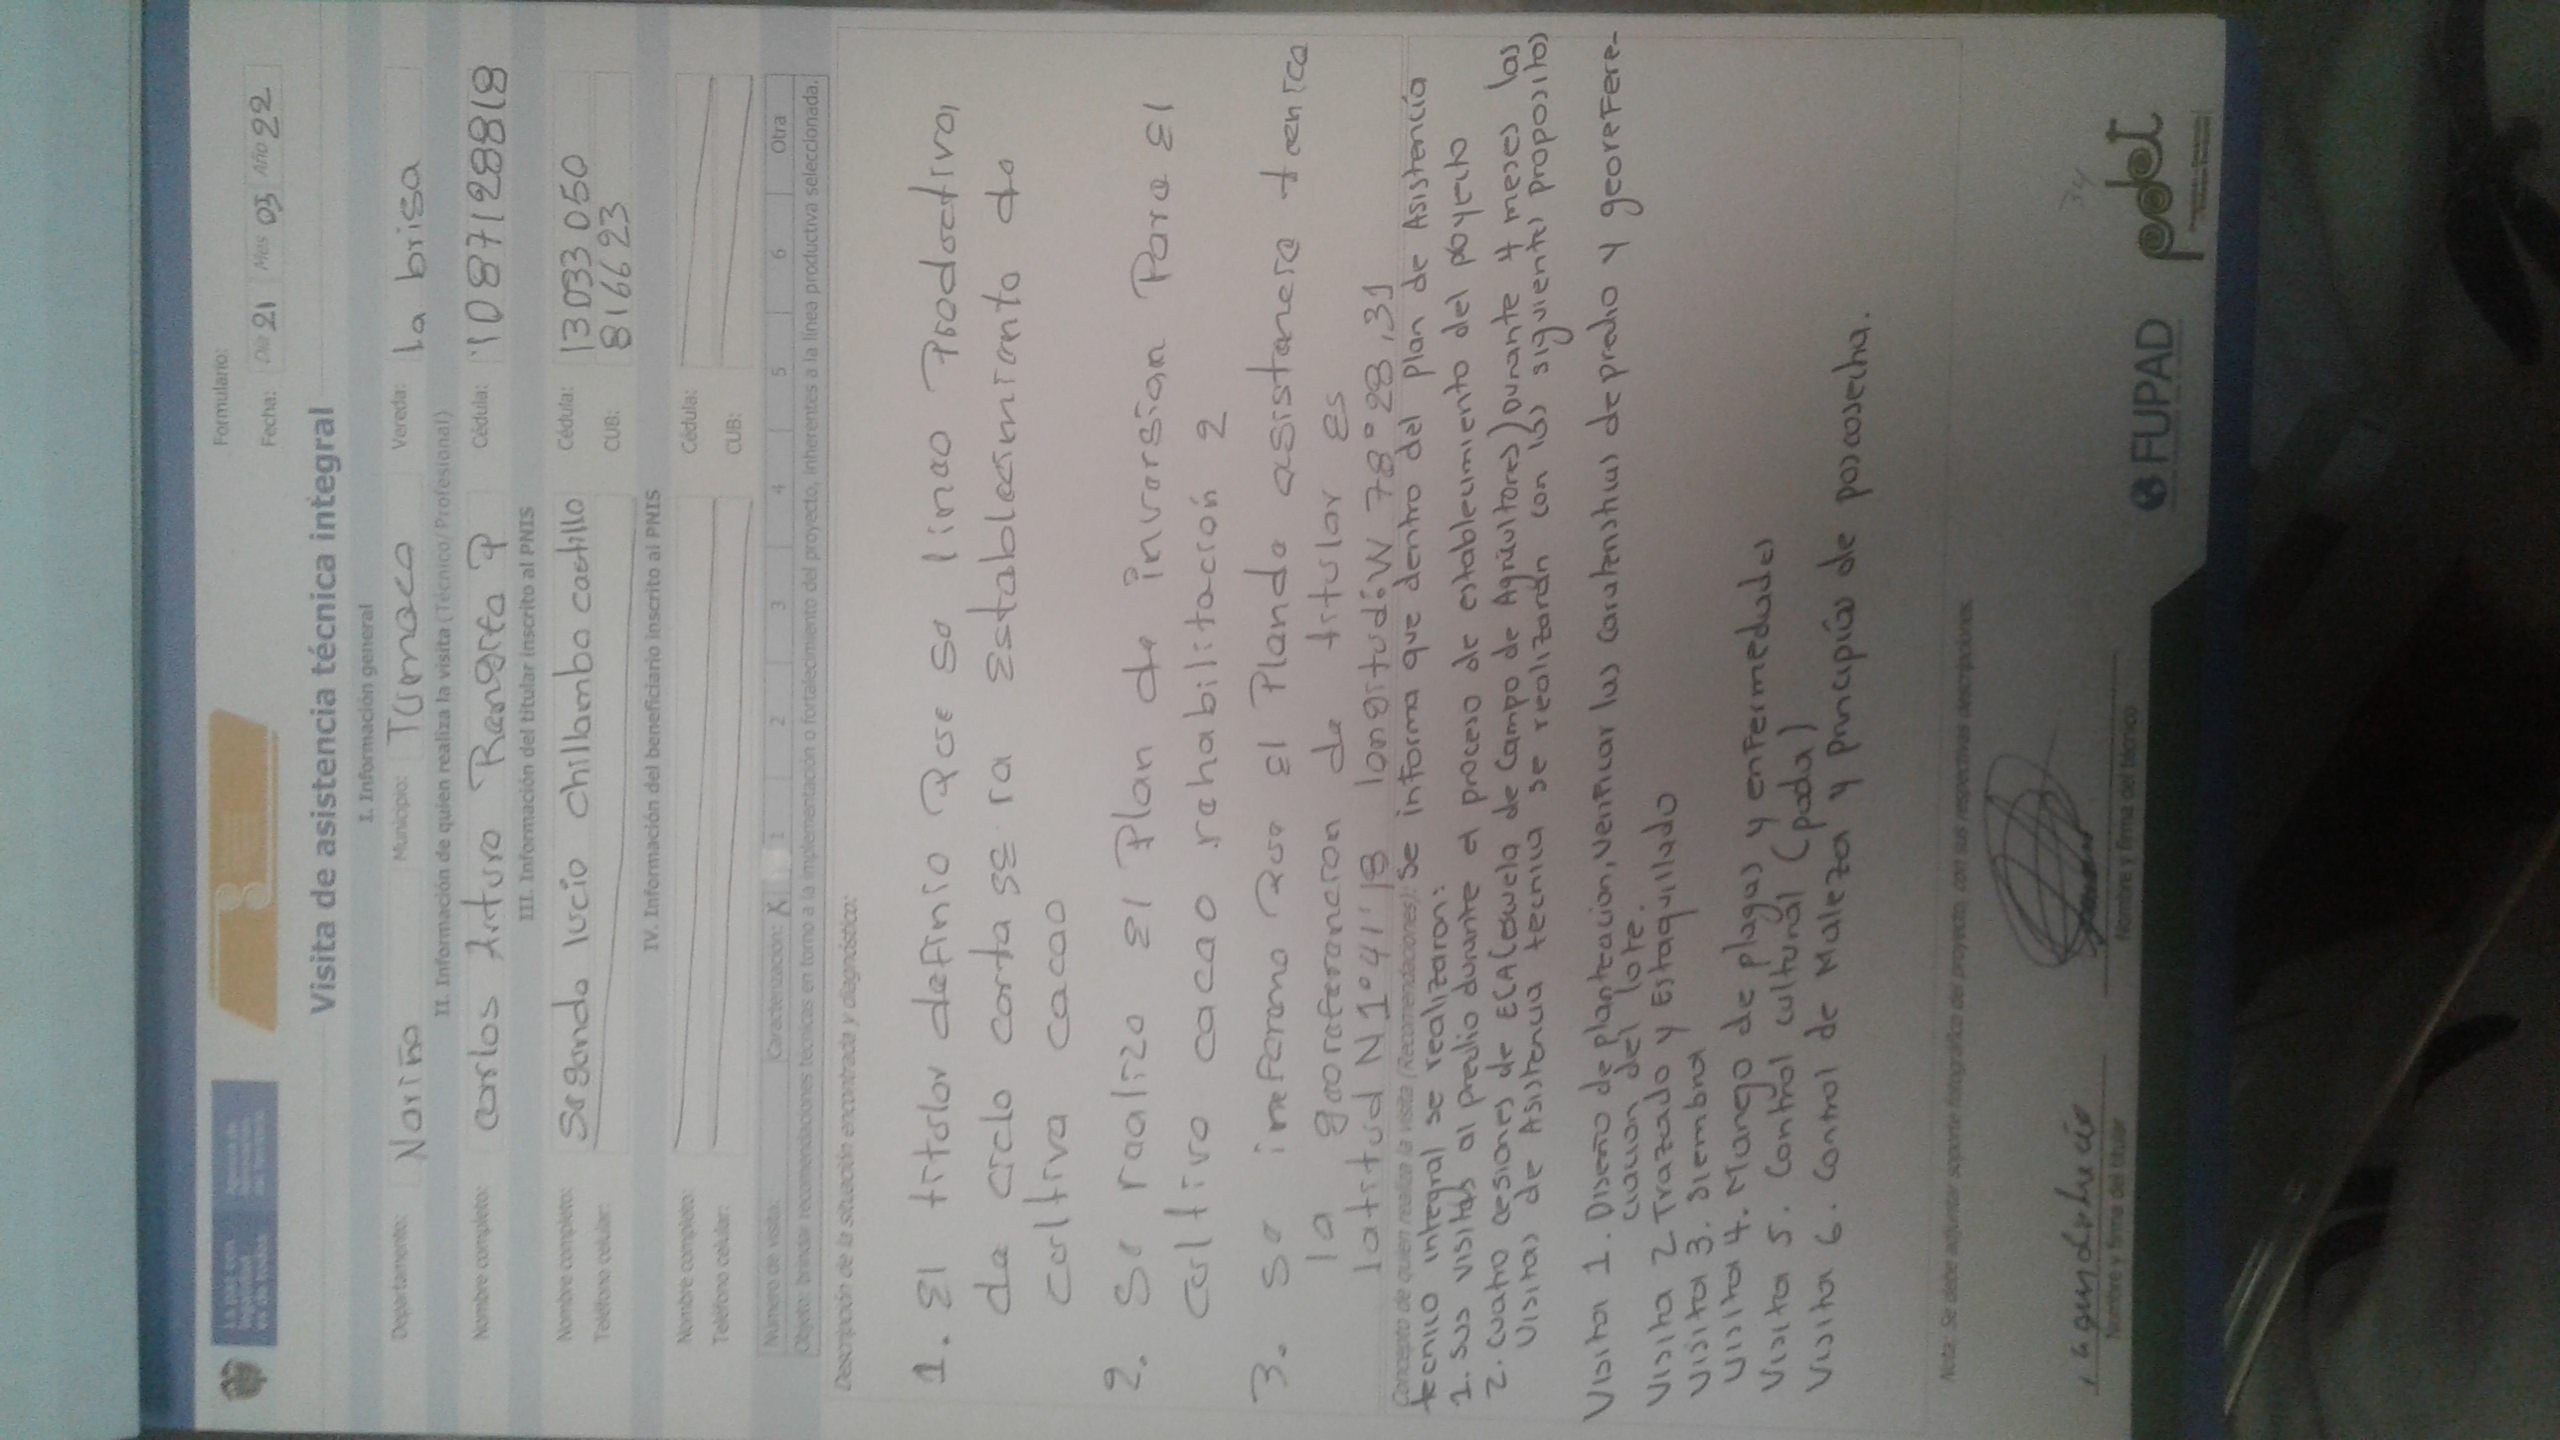 Formulario:
Fecha: Día 21 Mes 03 Año 22
Visita de asistencia técnica integral
I. Información general
Departamento: Nariño Municipio: Tumaco Vereda: la brisa
II. Información de quien realiza la visita (Técnico/Profesional)
Nombre completo: carlos Arturo P Cédula: 1087128818
III. Información del titular inscrito al PNIS
Nombre completo: Segundo lucio chillambo castillo Cédula: 13033050
Teléfono celular: CUB: 816623
IV. Información del beneficiario inscrito al PNIS
Nombre completo: Cédula:
Teléfono celular: CUB:
Número de visita: Caracterización: X 1 2 3 4 5 6 Otra
Objeto: brindar recomendaciones técnicas en torno a la implementación o fortalecimiento del proyecto, inherentes a la línea productiva seleccionada.
Descripción de la situación encontrada y diagnóstico:
1. El titular definio que su linea Productiva,
de ciclo corta se ra Establecimiento de
cultiva cacao
2. Se realizo El Plan de inversion Para El
cultivo cacao rehabilitación 2
3. Se informo que El Plan de asistencia tecnica
la georeferencion de titular es
latitud N 1°41'18 longitud: W 78°28,31
Concepto de quien realiza la visita (Recomendaciones): Se informa que dentro del plan de Asistencia
tecnico integral se realizaron:
1. Sus visitas al predio durante el proceso de establecimiento del poyecto
2. cuatro cesiones de ECA (escuela de Campo de Agricultores) Durante 4 meses las
visitas de Asistencia tecnica se realizarán con los siguientes proposito)
Visita 1. Diseño de planteacion, verificar las de predio y georefere-
ciacion del lote.
Visita 2 Trazado y Estaquillado
Visita 3. Siembra
Visita 4. Manejo de plagas y enfermedades
Visita 5. Control cultural (poda)
Visita 6. Control de Maleza y principios de poscosecha.
Nota: Se debe adjuntar soporte fotográfico del proyecto con sus respectivas descripciones.
Nombre y firma del titular
Nombre y firma del técnico
34
FUPAD
pdet